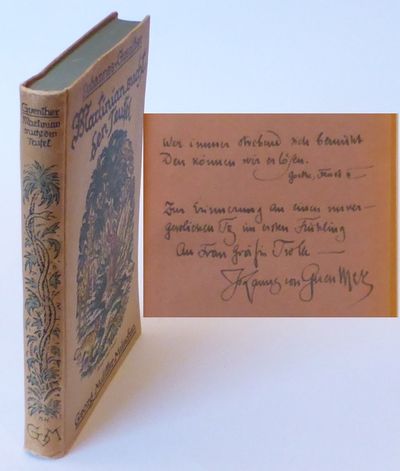 Guenther
Martinian
sucht den
Teufel
GM
Johannes v. Guenther
Martinian sucht
den Teufel
Georg Müller München
Wer immer strebend sich bemüht
Den können wir erlösen.
Goethe, Faust II
Zur Erinnerung an einen unver-
gesslichen Tag im ersten Frühling
An Frau Gräfin
Johannes von Guenther